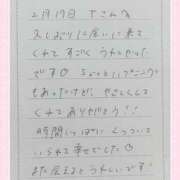 2月17日 Tさんへ
久しぶりに会いに来て
くれてすごく うれしかった
です♡ ちょっとハプニング
もあったけど、やさしくして
くれてありがとう!!
時間いっぱい くっついて
いられて幸せでした♡
また会えるとうれしいです!